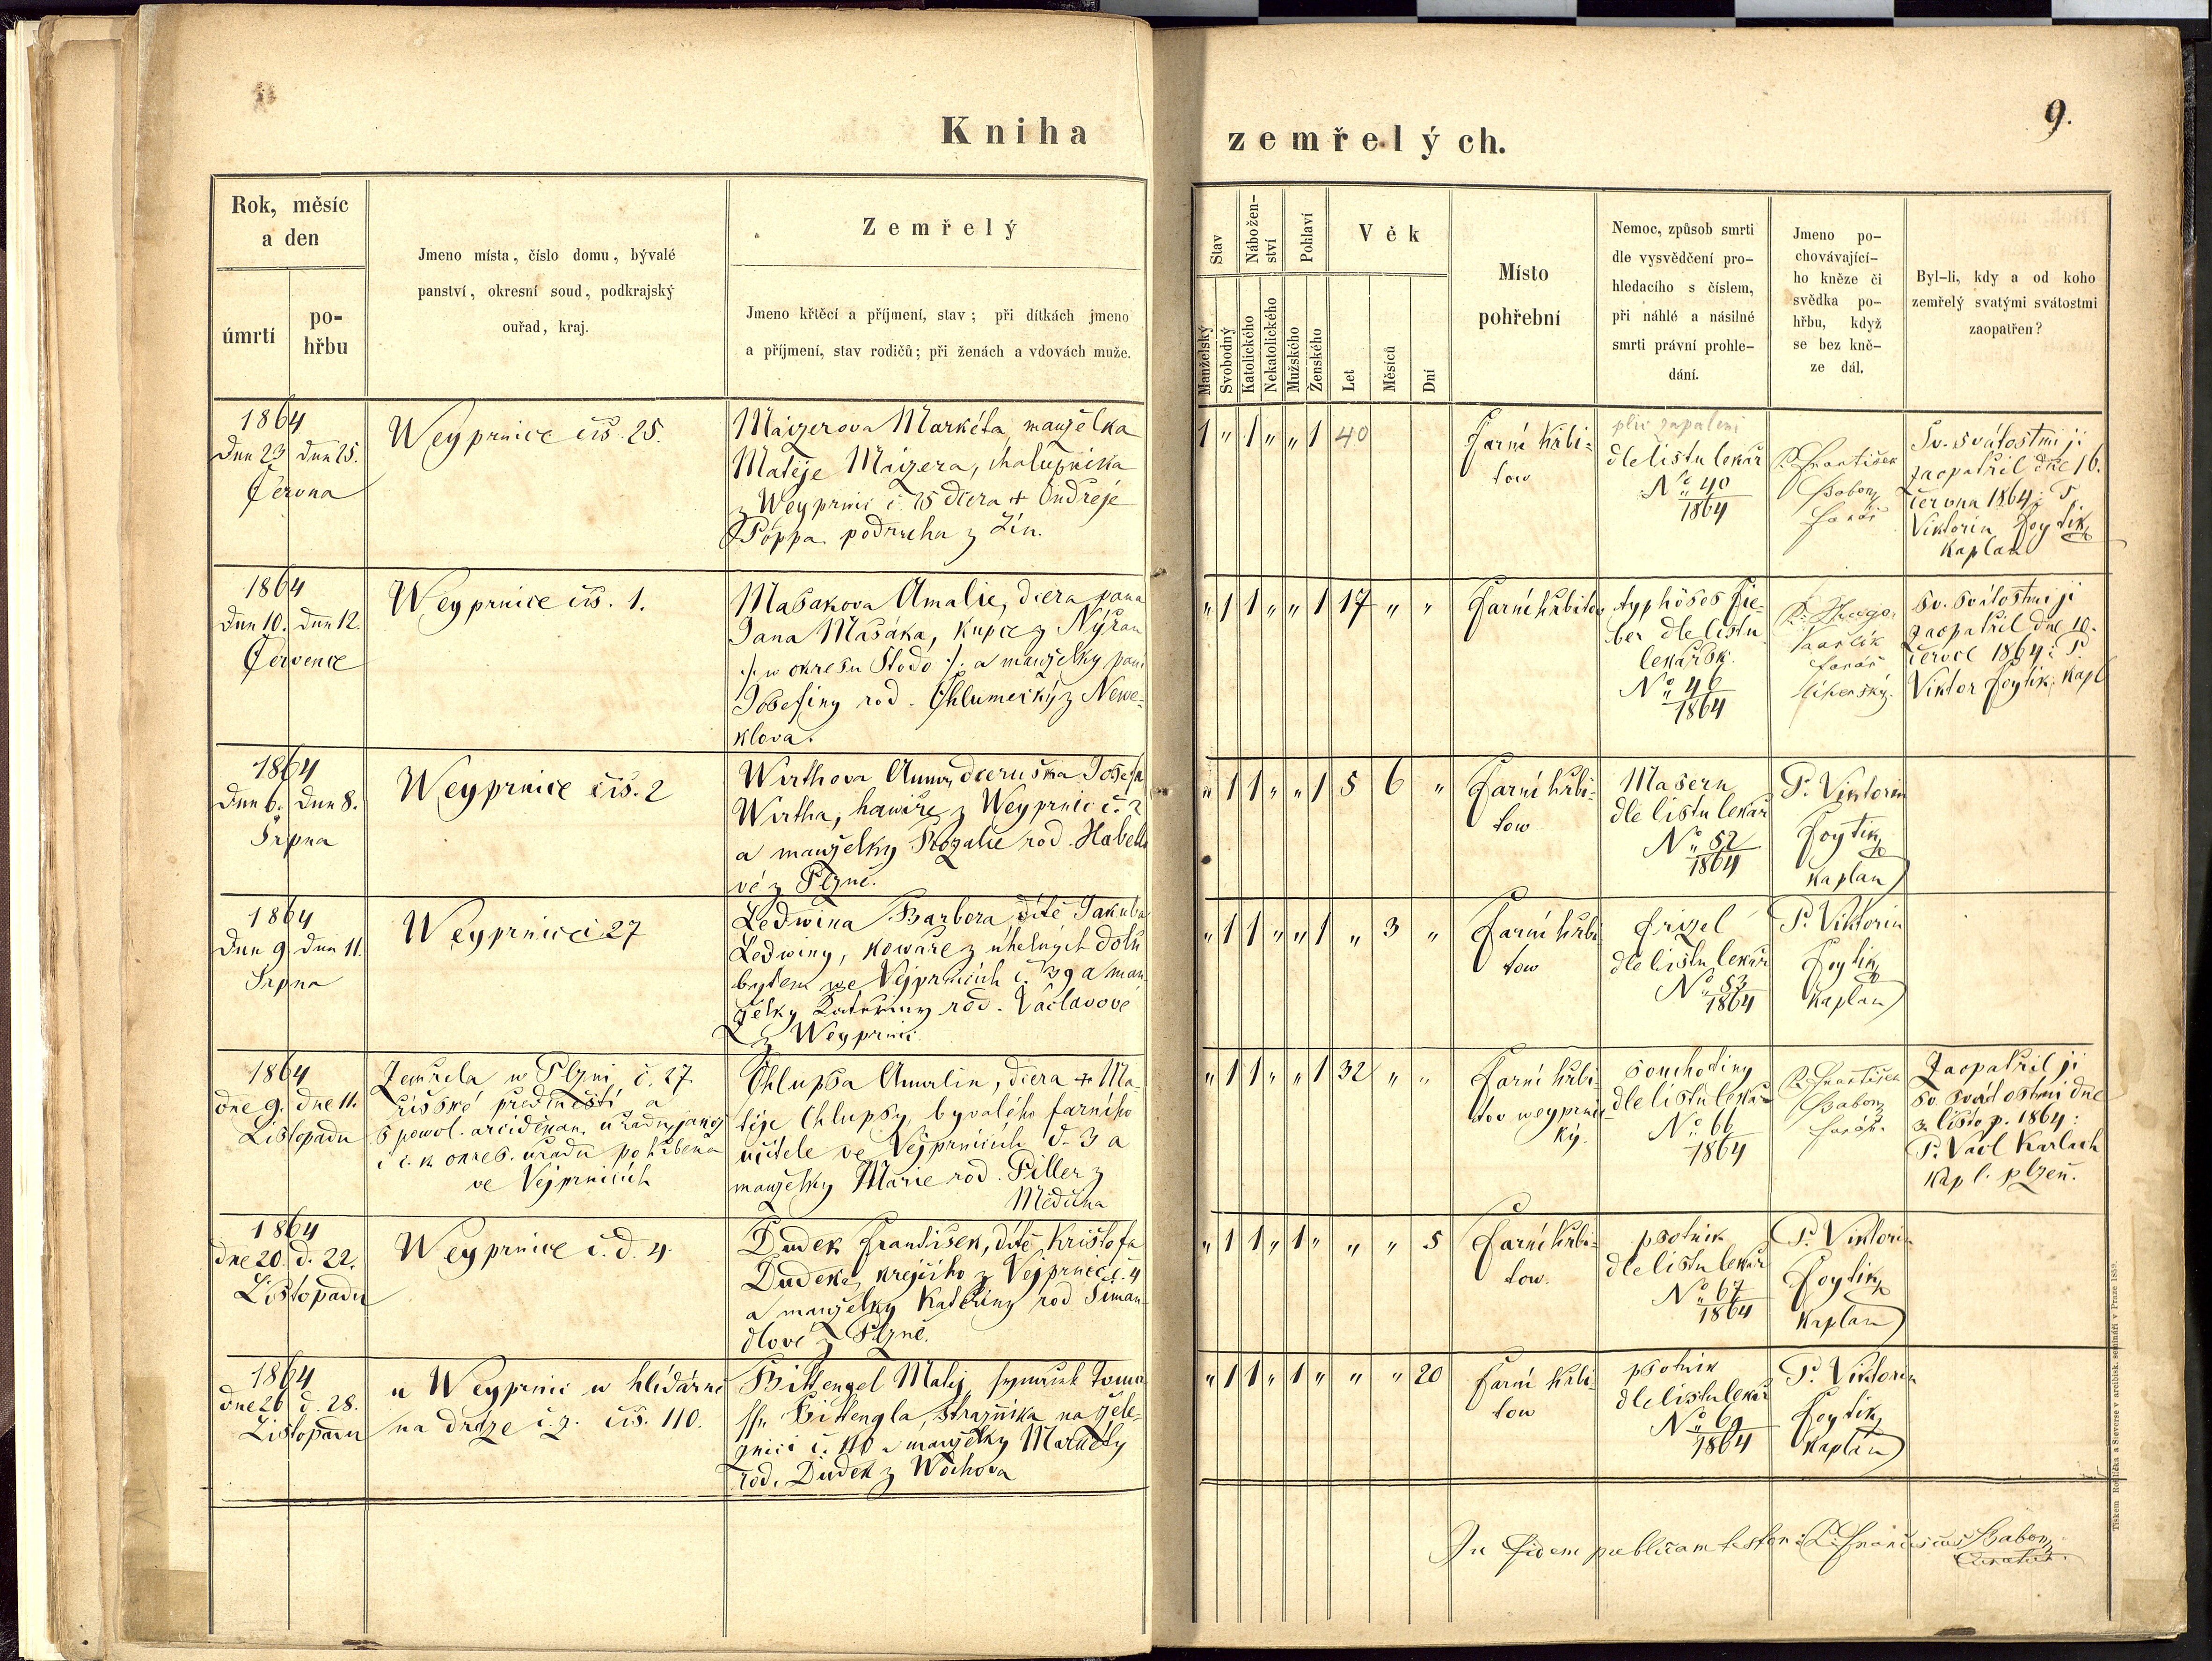 Kniha
zemřelých.
9.
Rok, měsíc
a den
úmrtí
po-
hřbu
Jmeno místa, číslo domu, bývalé
panství, okresní soud, podkrajský
ouřad, kraj.
Zemřelý
Jmeno křtěcí a příjmení, stav; při dítkách jmeno
a příjmení, stav rodičů; při ženách a vdovách muže.
Stav
Manželský
Svobodný
Nábožen-
ství
Katolického
Nekatolického
Pohlaví
Mužského
Ženského
Věk
Let
Měsíců
Dní
Místo
pohřební
Nemoc, způsob smrti
dle vysvědčení pro-
hledacího s číslem,
při náhlé a násilné
smrti právní prohle-
dání.
Jmeno po-
chovávající-
ho kněze či
svědka po-
hřbu, když
se bez kně-
ze dál.
Byl-li, kdy a od koho
zemřelý svatými svátostmi
zaopatřen?
1864
Dne 23 Dne 25.
Června
Weyprnice čís. 25.
Maizerova Markéta, manželka
Matěje Maizera, chalupníka
z Weyprnic č. 25 dcera + Ondřeje
Poppa podruha z Lín.
1 " 1 " " 1 40
Farní hřbi-
tow
plic zapalení
dle listu lekař
No 40
1864
P. František
Baborz
farář
Sv. svátostmi ji
zaopatřil dne 16.
června 1864: P.
Viktorin Foytik
kaplan
1864
Dne 10. Dne 12.
Července
Weyprnice čís. 1.
Mašakova Amalie, dcera pana
Jana Mašáka, kupce z Nýřan
/: w okresu Stodo :/ a manželky paní
Josefiny rod. Chlumecký z Newe-
klova.
" 1 1 " " 1 17 " "
Farní hřbitov
typhöses Fie-
ber dle listu
lekařsk.
No 46
1864
farář
Sv. svátostmi ji
zaopatřil dne 10.
červce 1864: P.
Viktor Foytik, kapl
1864
Dne 6. Dne 8.
Srpna
Weyprnice čís. 2
Wirthova Anna, dceruška Josefa
Wirtha, hawíře z Weyprnic č. 2
a manželky Rozalie rod. Habello
vé z Plzně.
" 1 1 " " 1 5 6 "
Farní hřbi-
tow
Masern
dle listu lekař
No 52
1864
P. Viktorin
Foytik
kaplan
1864
Dne 9. Dne 11.
Srpna
Weyprnic č 27
Ledwina Barbora, dítě Jakuba
Ledwiny, kowáře z uhelných dolů
bytem we Vejprnicích č. 39 a man
želky Kateřiny rod. Václavové
z Weyprnic
" 1 1 " " 1 " 3 "
Farní hřbi
tow
frizel
dle listu lekař
No 53
1864
P. Viktorin
Foytik
kaplan
1864
Dne 9. Dne 11.
Listopadu
Zemřela w Plzni, č. 27
říšské předměstí a
s powol. arciděkan. úřadu, jakož
i c. k. okres. úřadu pohřbena
ve Vejprnicích
Chlupsa Amalia, dcera + Ma-
těje Chlupsy, bývalého farního
učitele ve Vejprnicích d. 3 a
manželky Marie rod. Piller z
" 1 1 " " 1 32 " "
Farní hřbi
tov weyprnic
ký.
souchotiny
dle listu lekař
No 66
1864
P. František
Baborz
farář.
Zaopatřil ji
sv. svátostmi dne
3. listop. 1864:
P. Václ Karlach
kapl. plzeň.
1864
dne 20. d. 22.
Listopadu
Weyprnice č. d. 4.
Dudek František, dítě Krištofa
Dudeka, krejčího z Vejprnic č. 4
a manželky Kateřiny rod Šiman-
dlové z Plzně.
" 1 1 " 1 " " " 5
Farní hřbi-
tow.
psotník
dle listu lekař
No 67
1864
P. Viktorin
Foytik
kaplan
1864
dne 26 d. 28.
Listopadu
u Weyprnic w hlídárně
na dráze č. ž. čís. 110.
Bittengel Matěj, synáček Toma
sse Bittengla, strážníka na žele-
znici č. 110 a manželky Markéty
rod. Dudek z Wochova
" 1 1 " 1 " " " 20
Farní hřbi-
tow
psotník
dle listu lekař
No 69
1864
P. Viktorin
Foytik
kaplan
In fidem publicam testor: P. Franciscus Baborz
Curatus.
Tiskem Rohlíčka a Sieverse v arcibisk. semináři v Praze 1859.